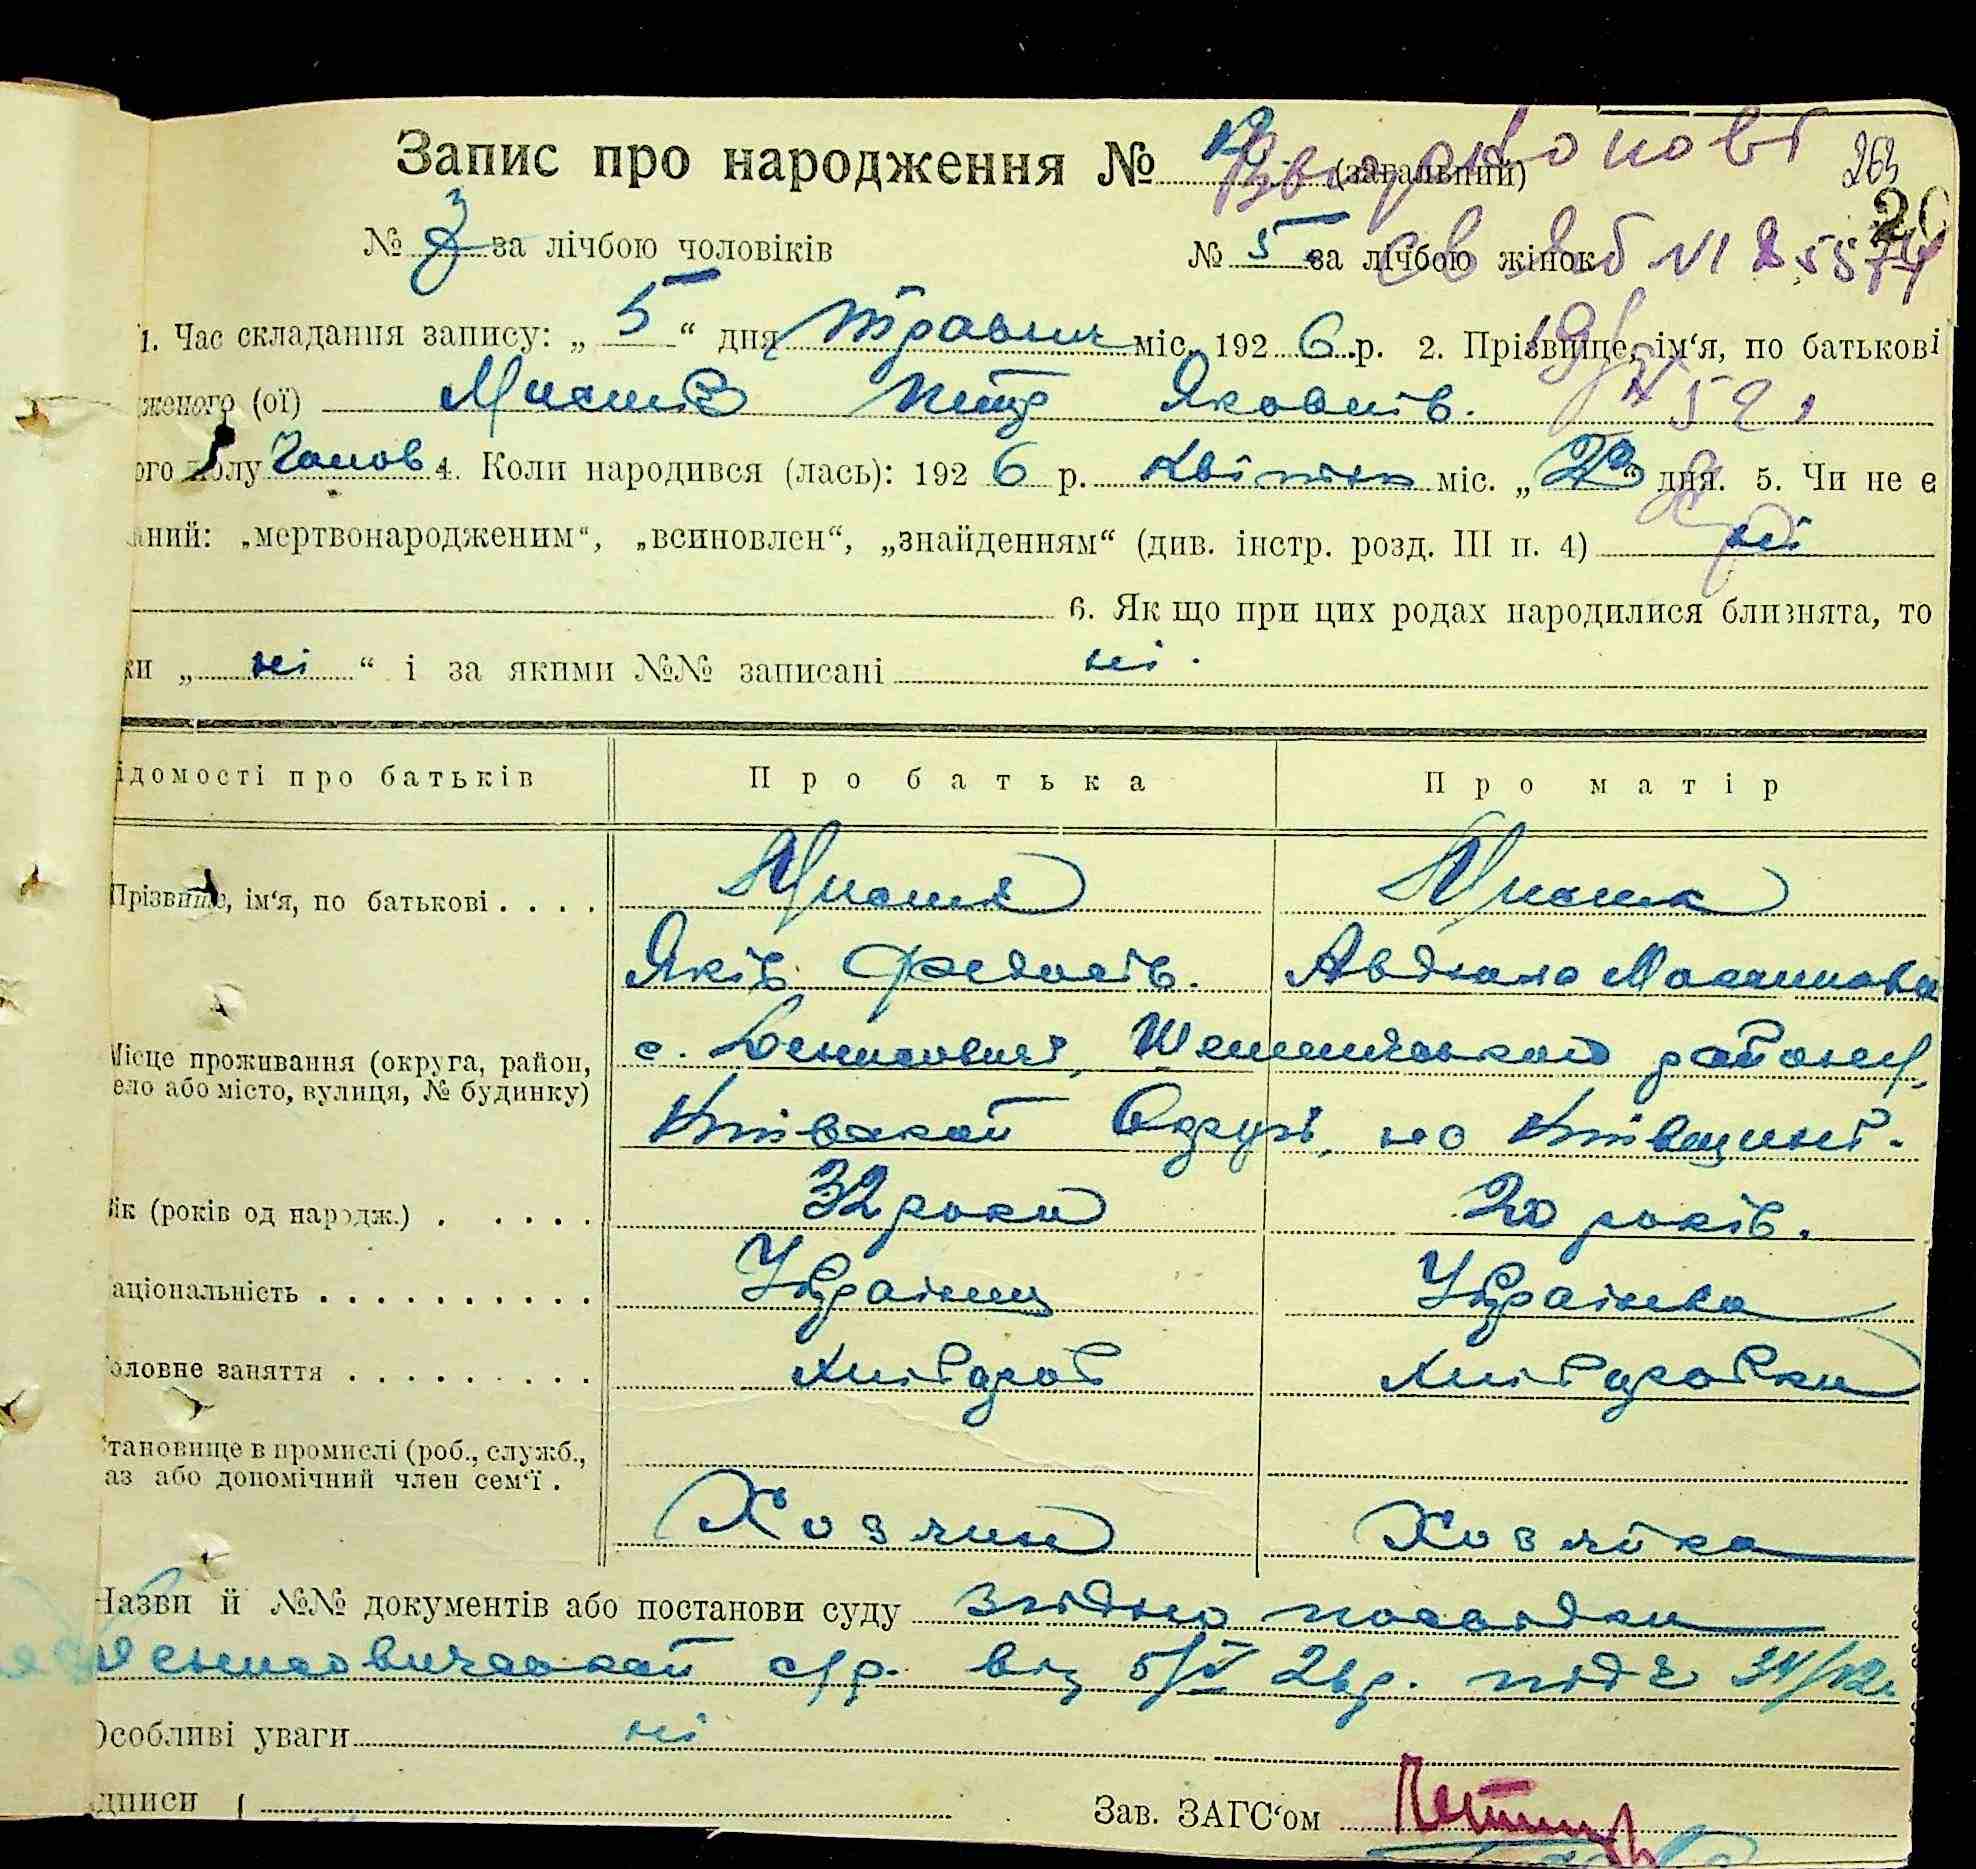 Запис про народження № 12 (загальний)
263
20
№ 3 за лічбою чоловіків № 5 за лічбою жінок
1. Час складання запису: „ 5 “ дня травня міс. 192 6 р. 2. Прізвище, ім‘я, по батькові
женого (ої) Петр Яковлів.
ого полу Чолов 4. Коли народився (лась): 192 6 р. квітня міс. „ “ дня. 5. Чи не є
аний: „мертвонародженим“, „всиновлен“, „знайденням“ (див. інстр. розд. III п. 4) ні
6. Як що при цих родах народилися близнята, то
ки „ ні “ і за якими №№ записані ні.
ідомості про батьків Про батька Про матір
Прізвище, ім‘я, по батькові . . . .
Яків Федосів. Максимовна
Місце проживання (округа, район, с. Денисовичі, района,
ело або місто, вулиця, № будинку)
Київської Округи, на Київщині.
ік (років од народж.) . . . . . 32 роки 20 років.
аціональність . . . . . . . . . . Українец Українка
оловне заняття . . . . . . . . . Хлібороб Хліборобка
тановище в промислі (роб., служб.,
аз або допомічний член сем‘ї .
Хозяин Хозяйка
Назви й №№ документів або постанови суду Згідно посвідки
Денисовичської с/р. від 5/V 26р. під № 34/12.
Особливі уваги ні
дписи ( Зав. ЗАГС‘ом